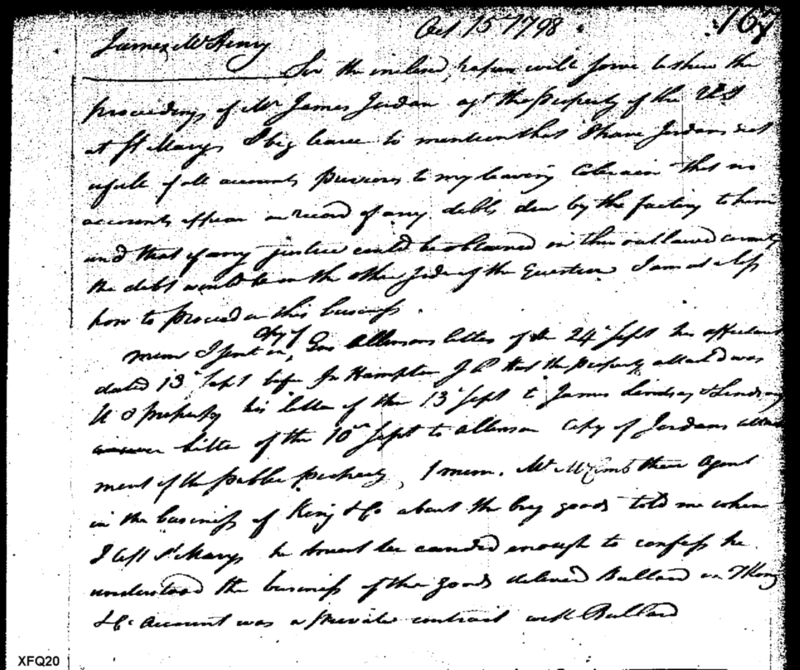 Oct 15 1798 167
James McHenry
Sir the inclosed papers will serve to shew the
proceedings of Mr James Jordan agt the property of the U S
at St Marys I beg leave to mention that I have Jordans rect
in full of all accounts previous to my leaving Colerain that no
accounts appear on record of any debts due by the factory to him
and that if any justice could be obtained in this outlawed county
the debt would be on the other side of the Question I am at a loss
how to proceed in this business
mem I sent in Copy of Geo Allensons letter of the 24 Sept his affidavit
dated 13 Sept before Jn Hampton J P that the property attachd was
U S property his letter of the 13 Sept to James Lindsay & Lindsay
answer letter of the 10th Sept to Allenson Copy of Jordans attach
ment of the public property, 1 mem. Mr their Agent
in the business of King & Co about the goods told me when
I left St Marys he must be candid enough to confess he
understood the business of the goods delivered Bullard on King
& Co Account was a private contract with Bullard
XFQ20